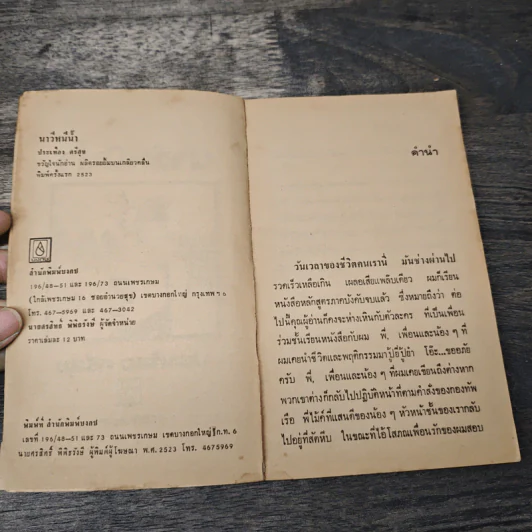 นาวีหนีน้ำ
ประเทือง ศรีสุข
ขวัญใจนักอ่าน ผลิตรอยยิ้มบนเกลียวคลื่น
พิมพ์ครั้งแรก 2523
สำนักพิมพ์บงกช
196/48-51 และ 196/73 ถนนเพชรเกษม
(ใกล้เพชรเกษม 16 ซอยอำนวยสุข) เขตบางกอกใหญ่ กรุงเทพ ฯ 6
โทร. 467-5969 และ 467-3042
นายศรสิทธิ์ พิศิธรังษี ผู้จัดจำหน่าย
ราคาเล่มละ 12 บาท
พิมพ์ที่ สำนักพิมพ์บงกช
เลขที่ 196/48-51 และ 73 ถนนเพชรเกษม เขตบางกอกใหญ่ กท. 6
นายศรสิทธิ์ พิศิธรังษี ผู้พิมพ์ผู้โฆษณา พ.ศ. 2523 โทร. 4675969
คำนำ
วันเวลาของชีวิตคนเรานี้ มันช่างผ่านไป
รวดเร็วเหลือเกิน เผลอเสียแพล็บเดียว ผมก็เรียน
หนังสือหลักสูตรภาคบังคับจบแล้ว ซึ่งหมายถึงว่า ต่อ
ไปนี้คุณผู้อ่านก็คงจะห่างเหินกับตัวละคร ที่เป็นเพื่อน
ร่วมชั้นเรียนหนังสือกับผม พี่, เพื่อนและน้อง ๆ ที่
ผมเคยนำชีวิตและพฤติกรรมมาปู้ยี่ปู้ยำ โอ๊ะ...ขออภัย
ครับ พี่, เพื่อนและน้อง ๆ ที่ผมเคยเขียนถึงต่างหาก
พวกเขาต่างก็กลับไปปฏิบัติหน้าที่ตามกำลังของกองทัพ
เรือ พี่ไม้คี่ที่แสนดีของน้อง ๆ หัวหน้าชั้นของเรากลับ
ไปอยู่ที่สัตหีบ ในขณะที่ไอ้โสภณเพื่อนรักของผมสอบ